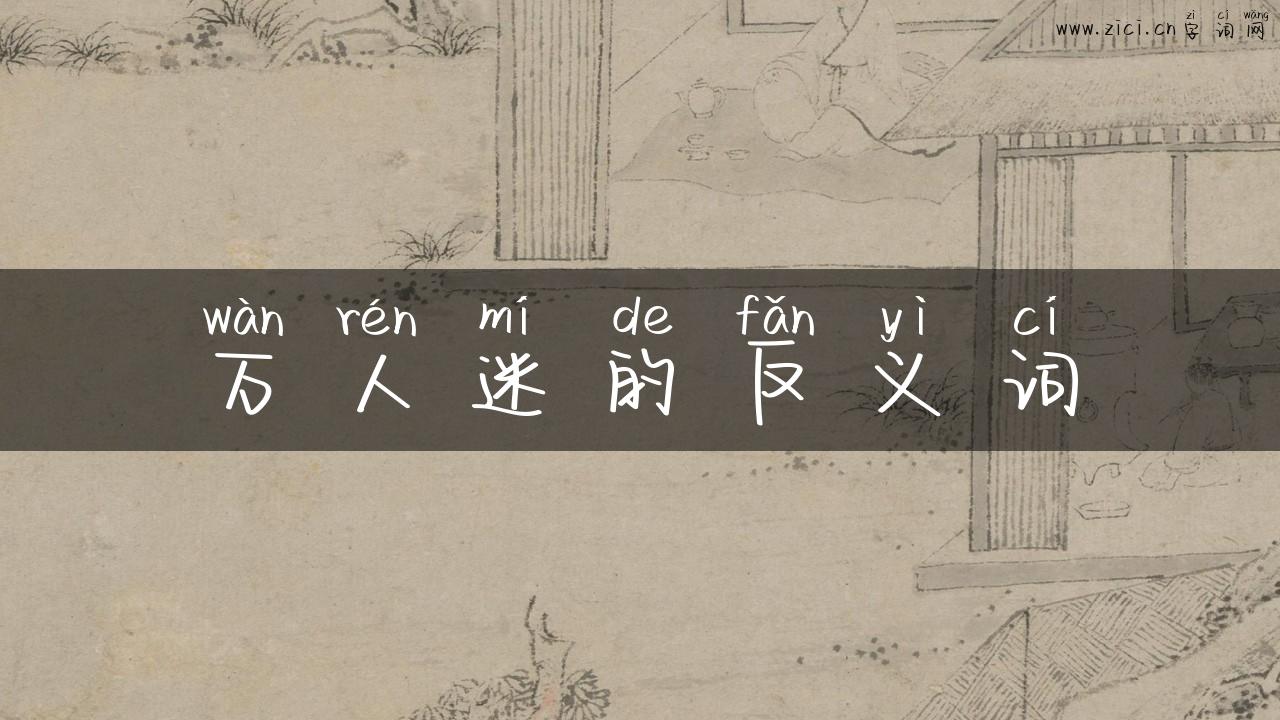 zì cí wǎng
www.zici.cn 字词网
wàn rén mí de fǎn yì cí
万人迷的反义词